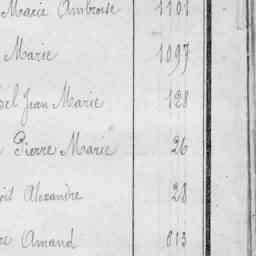 Marie Ambroise 1101
Marie 1097
Jean Marie 128
Pierre Marie 26
Alexandre 28
Amand 813